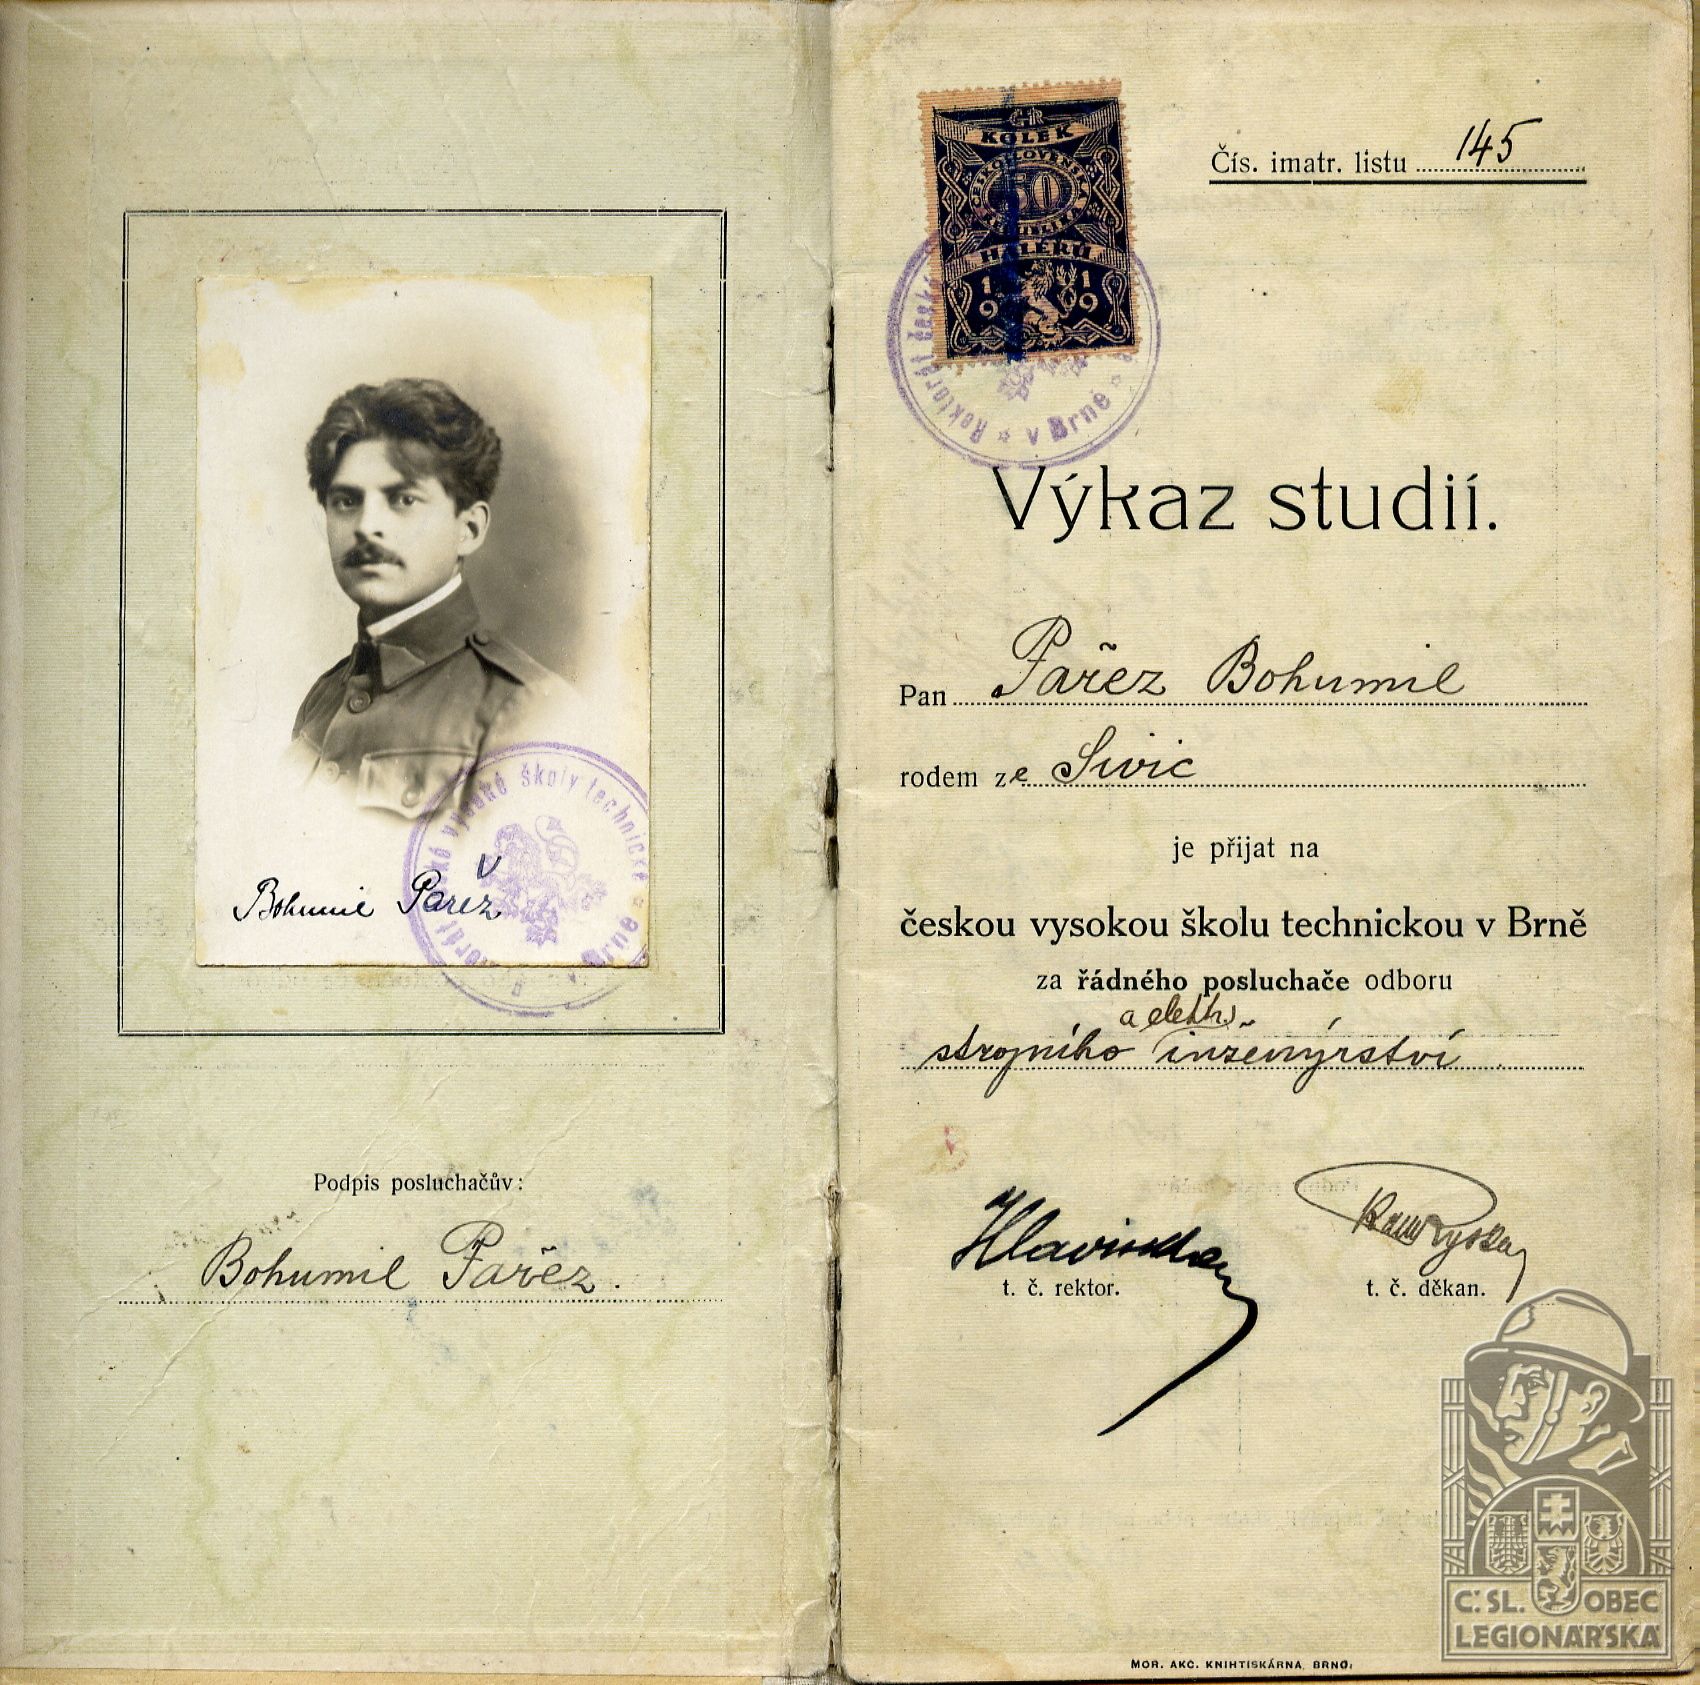 Bohumil Pařez
Rektorát české vysoké školy technické v Brně
Podpis posluchačův:
Bohumil Pařez.
KOLEK
ČESKOSLOVENSKÁ REPUBLIKA
50
HALÉŘŮ
1919
Rektorát české v Brně
Čís. imatr. listu 145
Výkaz studií.
Pan Pařez Bohumil
rodem ze Sivic
je přijat na
českou vysokou školu technickou v Brně
za řádného posluchače odboru
a elektr.
strojního inženýrství
Hlavinka
t. č. rektor.
t. č. děkan.
Č. SL. OBEC
LEGIONÁŘSKÁ
MOR. AKC. KNIHTISKÁRNA, BRNO.